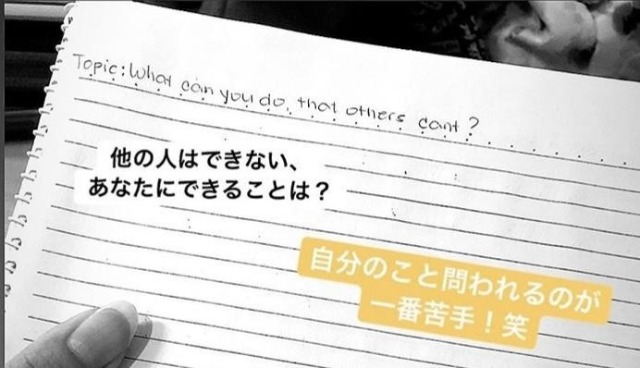 Topic: What can you do, that others cant?
他の人はできない、
あなたにできることは？
自分のこと問われるのが
一番苦手！笑